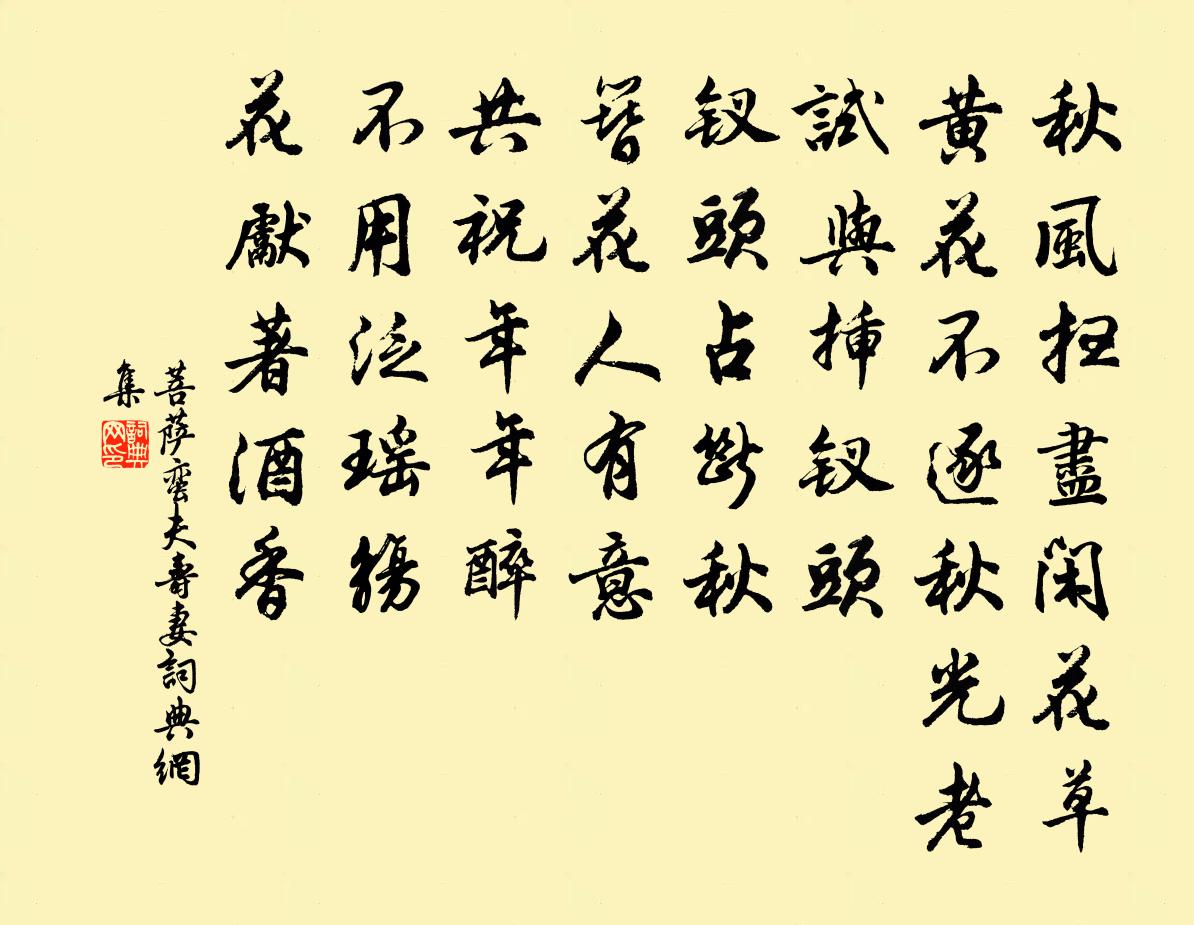 秋風掃盡閑花草
黃花不逐秋光老
試與插釵頭
釵頭占斷秋
簪花人有意
共祝年年醉
不用泛瑤觴
花獻著酒香
菩薩蠻夫壽妻詞典網
集
詞典
网印